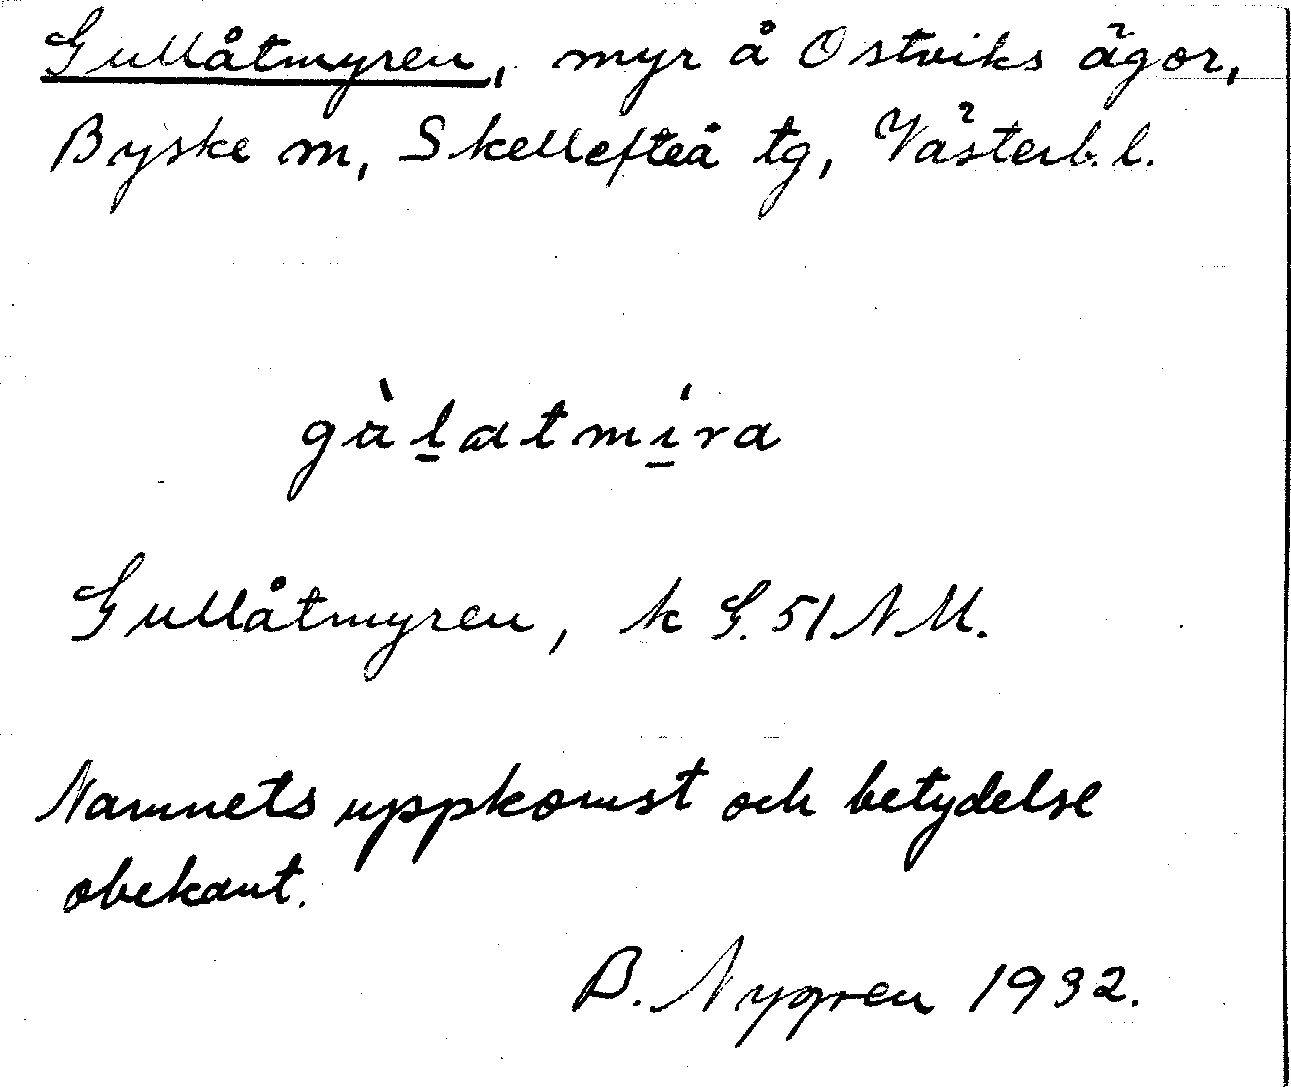 Gullåtmyren, myr å Ostviks ägor,
Byske m, Skellefteå tg, Västerb. l.
gàl̲atmí̲ra
Gullåtmyren, k G. 51 N M.
Namnets uppkomst och betydelse
obekant.
B. Nygren 1932.